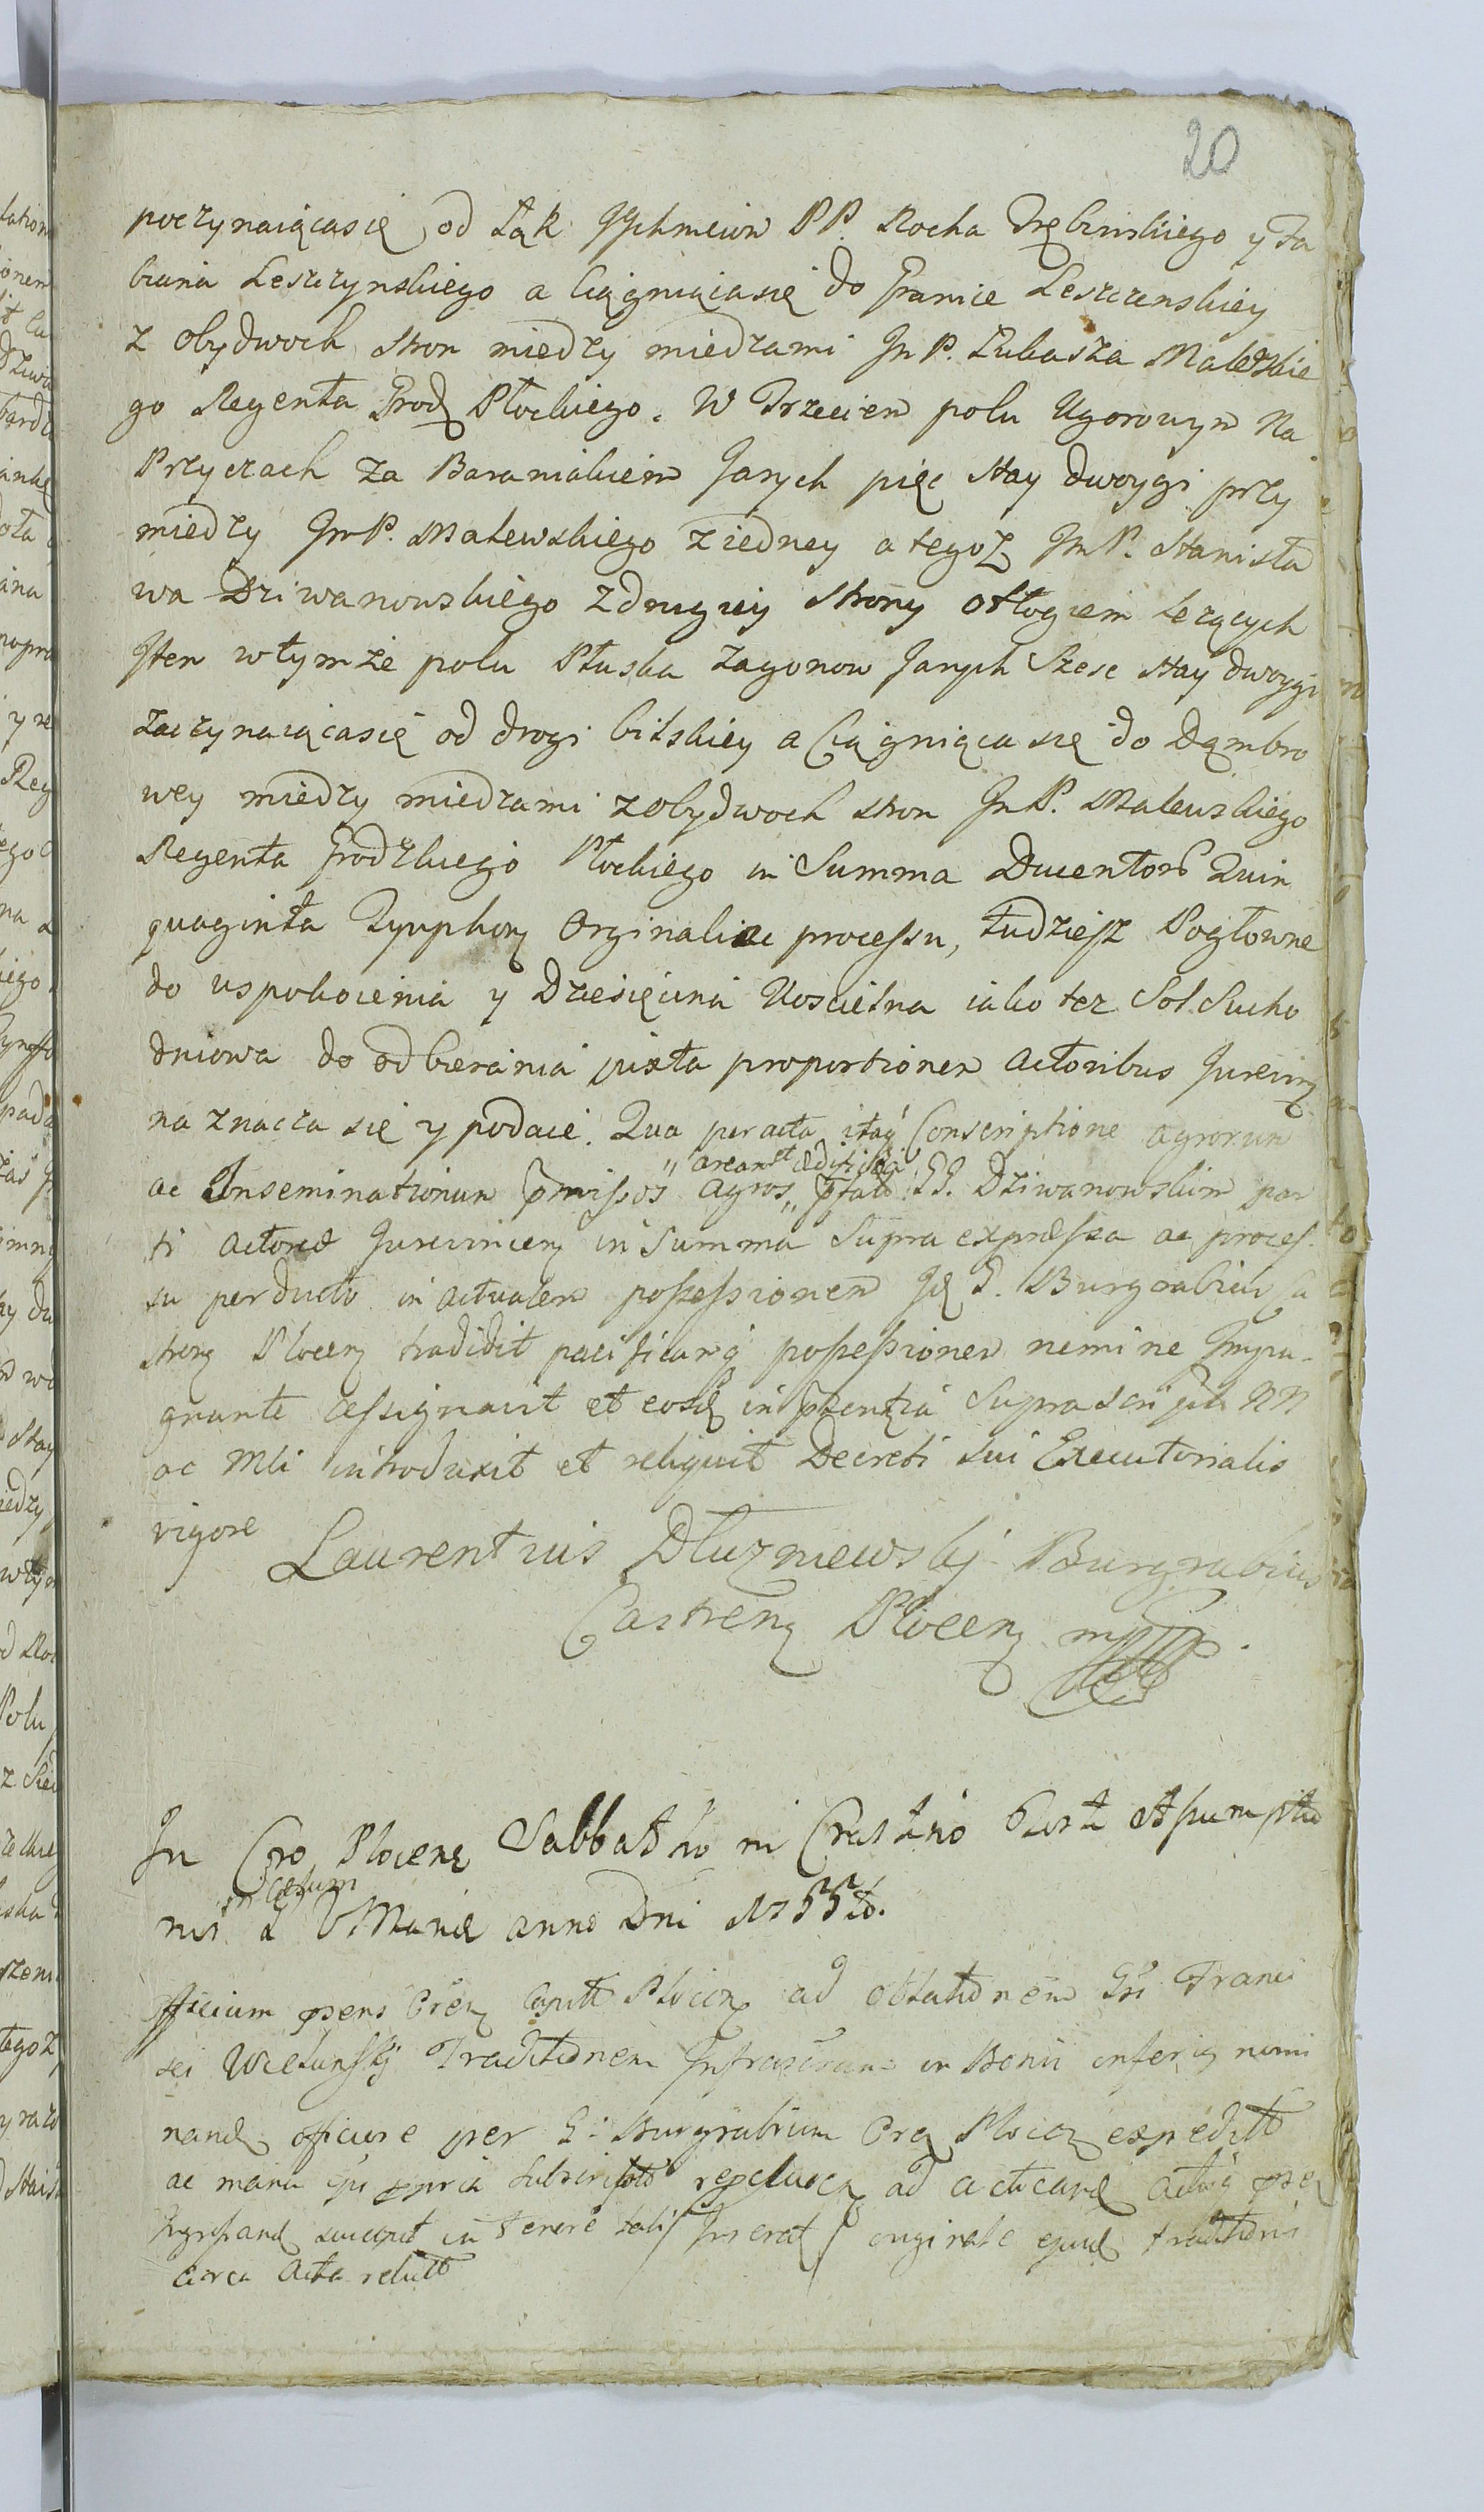 20
poczynaiącasię od Łąk Ichmciow PP. Rocha Trębinskiego y Fa
biana Leszczynskiego a Ciągniącasię do Granice Leszczenskiey
z obydwoch stron miedzy miedzami Jm P. Łukasza Malewskie
go Regenta Grodz Płockiego. W Trzeciem polu Ugorowym Na
Przyczach za Baraniakiem Jarych pięc stay dwoygi przy
miedzy Jm P. Malewskiego z iedney a tegoz Jm P. Stanisła
wa Dziwanowskiego z drugiey strony odłogiem lezących
Item w tymze polu Płuska zagonow Jarych Szesc stay dwoygi
zaczynaiącasię od drogi bilskiey a Ciągniąca się do Dąmbro
wey miedzy miedzami z obydwoch stron Jm P. Malewskiego
Regenta Grodzkiego Płockiego in Summa Ducentor Quin
quaginta Tynphon Orginali ac processu, tudziesz Pogłowne
do uspokoienia y Dziesięcina Koscielna iako tez Sol Sucho
dniowa do odbierania juxta proportionem actoribus Jurevin
naznacza się y podaie. Qua peracta itaq Conscriptione agrorum
ac Inseminationum pmissos agros " areamt ædificia " ptato GG. Dziwanowskim par
ti actoreæ Jurevincen in Summa Supra expressa ac proces
su perducto in actualem possessionem Id G. Burgrabius Ca
stren Plocen tradidit pacificamq possessionem nemine Impu-
gnante assignavit et eosd in pntia Suprascript NN
ac Mli introduxit et reliquit Decreti sui Executorialis
vigore
Laurentius Dłuzniewskj Burgrabius
Castren Plocen mpp
In Cro Plocen Sabbatho in Crastino Festi Assumptio
nis in Cælum B V Mariæ anno Dni 1755to.
Officium psens Cren Capitt Plocen ad oblationem Gsi Franci
sci Wielunskj Traditionem Infrascram in Bonis inferiq nomi
nand officiose per G: Burgrabium Cren Plocen expeditt
ac manu ipi ppria subscriptt ad acticand actisq psen
suscepit in Tenore tali / Inserat / originale ejusd traditionis
circa Acta relictt